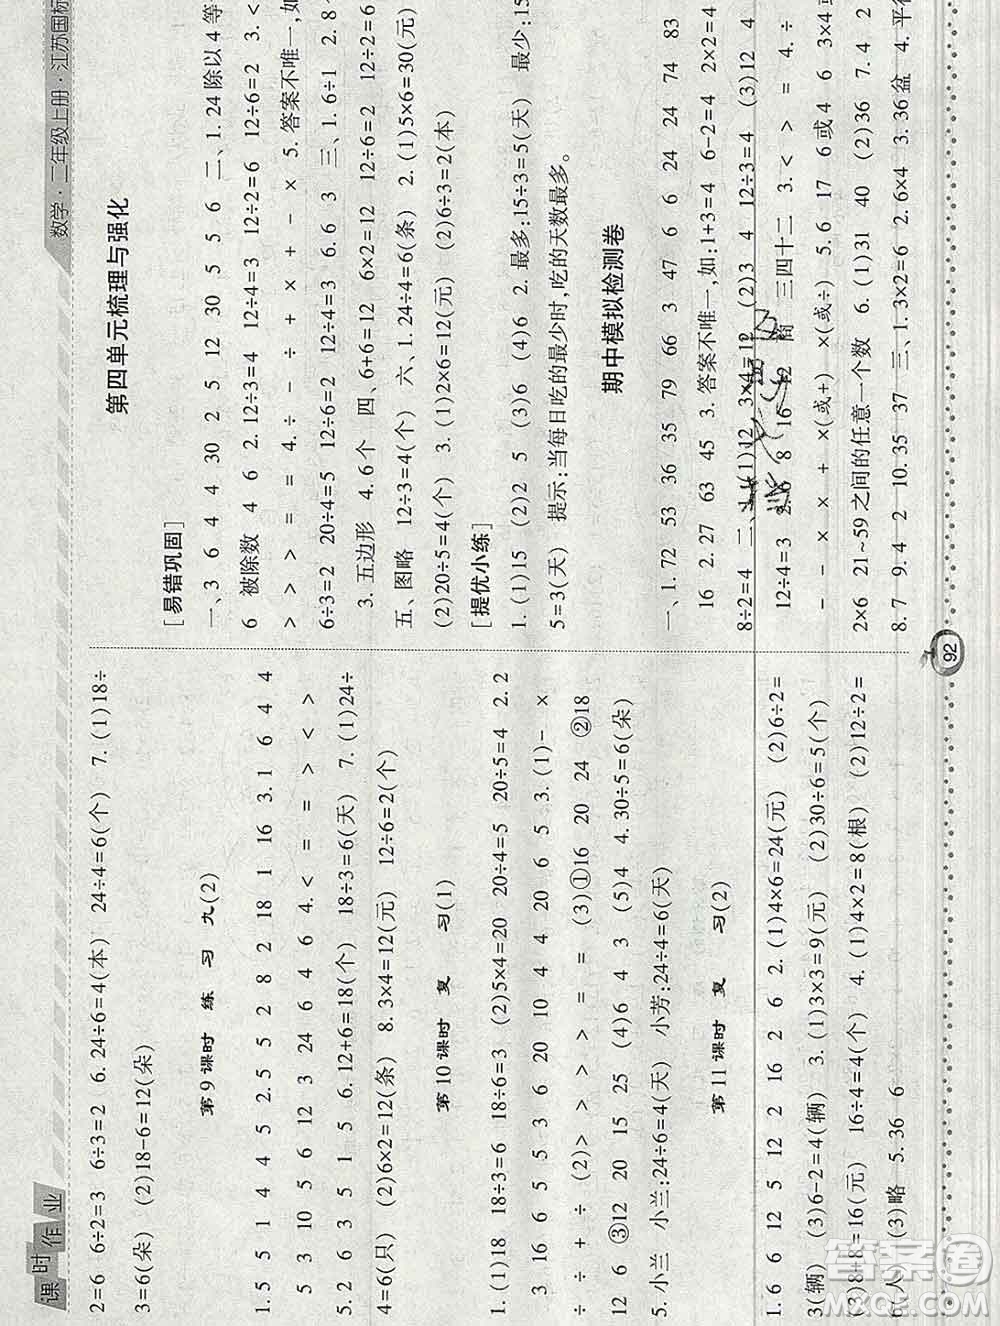 课时作业
数学·二年级上册·江苏国标
2=6 6÷2=3 6÷3=2 6. 24÷6=4(本) 24÷4=6(个) 7. (1)18÷
3=6(朵) (2)18-6=12(朵)
第9课时 练 习 九(2)
1. 5 5 1 4 4 5 2. 5 5 2 8 2 18 1 16 3. 1 6 4 4
5 3 10 5 6 12 3 24 6 4 6 4. < = = > < >
5. 2 6 3 5 1 5 6. 12+6=18(个) 18÷3=6(天) 7. (1)24÷
4=6(只) (2)6×2=12(条) 8. 3×4=12(元) 12÷6=2(个)
第10课时 复 习(1)
1. (1)18 18÷3=6 18÷6=3 (2)5×4=20 20÷4=5 20÷5=4 2. 2
3 16 6 5 5 3 6 20 10 4 4 20 6 5 3. (1)- ×
÷ ÷ + ÷ (2)> > > > = = (3)①16 20 24 ②18
12 6 ③12 20 15 25 (4)6 4 3 (5)4 4. 30÷5=6(朵)
5. 小兰 小兰:24÷6=4(天) 小芳:24÷4=6(天)
第11课时 复 习(2)
1. 6 6 12 5 12 2 16 2 6 2. (1)4×6=24(元) (2)6÷2=
3(辆) (3)6-2=4(辆) 3. (1)3×3=9(元) (2)30÷6=5(个)
(3)8+8=16(元) 16÷4=4(个) 4. (1)4×2=8(根) (2)12÷2=
6(人) (3)略 5. 36 6
第四单元梳理与强化
[易错巩固]
一、3 6 4 4 30 2 5 12 30 5 5 6 二、1. 24 除以 4 等
6 被除数 4 6 2. 12÷3=4 12÷4=3 12÷2=6 12÷6=2 3. <
> > > = = 4. ÷ - ÷ + × + - × 5. 答案不唯一,如
6÷3=2 20÷4=5 20÷5=4 12÷6=2 12÷4=3 6. 6 3 三、1. 6÷1 2. 8
3. 五边形 4. 6 个 四、6+6=12 6×2=12 12÷6=2 12÷2=6
五、图略 12÷3=4(个) 六、1. 24÷4=6(条) 2. (1)5×6=30(元)
(2)20÷5=4(个) 3. (1)2×6=12(元) (2)6÷3=2(本)
[提优小练]
1. (1)15 (2)2 5 (3)6 (4)6 2. 最多:15÷3=5(天) 最少:15
5=3(天) 提示:当每日吃的最少时,吃的天数最多。
期中模拟检测卷
一、1. 72 53 36 35 79 66 3 47 6 6 24 24 74 83
16 2. 27 63 45 3. 答案不唯一,如:1+3=4 6-2=4 2×2=4
8÷2=4 二、1. (1)12 3×4=12 (2)3 4 12÷3=4 (3)12 4
12÷4=3 2. 6 8 16 12 商 三四十二 3. < > = 4. ÷
- - × × + ×(或+) ×(或÷) 5. 6 17 6或4 6 3×4
2×6 21~59 之间的任意一个数 6. (1)31 40 (2)36 7. 4 2
8. 7 9. 4 2 10. 35 37 三、1. 3×2=6 2. 6×4 3. 36盆 4. 平行
92
答案圈
MXQE.COM